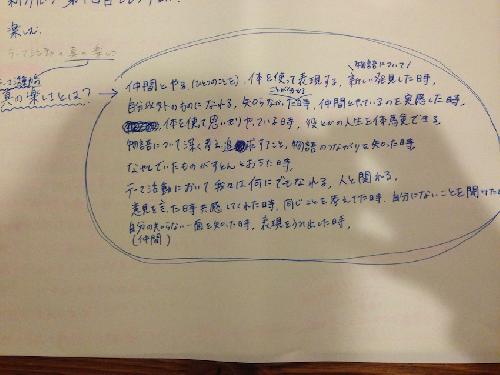 楽しむ
テーマ活動の真の楽しい
真の楽しさとは?
物語について!
仲間とやる(ひとつのことを)、体を使って表現する、新しい発見した時、
自分以外のものになれる、知らなかった時、仲間とやっているのを実感した時、
体を使って思いっきりやっている時、役とかの人生を体感できる。
物語について深く考え追求すること、物語のつながりを知った時、
なやんでいたものがすとんとおちた時、
テーマ活動において我々は何にでもなれる、人と関われる。
意見を言った時共感してくれた時、同じことを考えてた時、自分にないことを聞けた
自分の知らない一面を知った時、表現をうみ出した時、
(仲間)